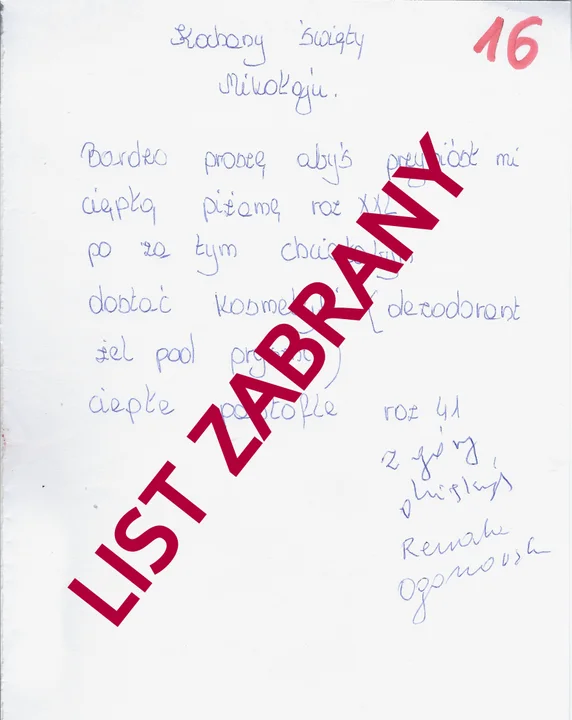 Kochany święty
16
Mikołaju.
Bardzo proszę abyś przyniósł mi
ciepłą piżamę roz XXL
po za tym chciałabym
dostać kosmetyki (dezodorant
żel pod prysznic)
ciepłe pantofle roz 41
z góry
dziękuję
Renata
LIST ZABRANY